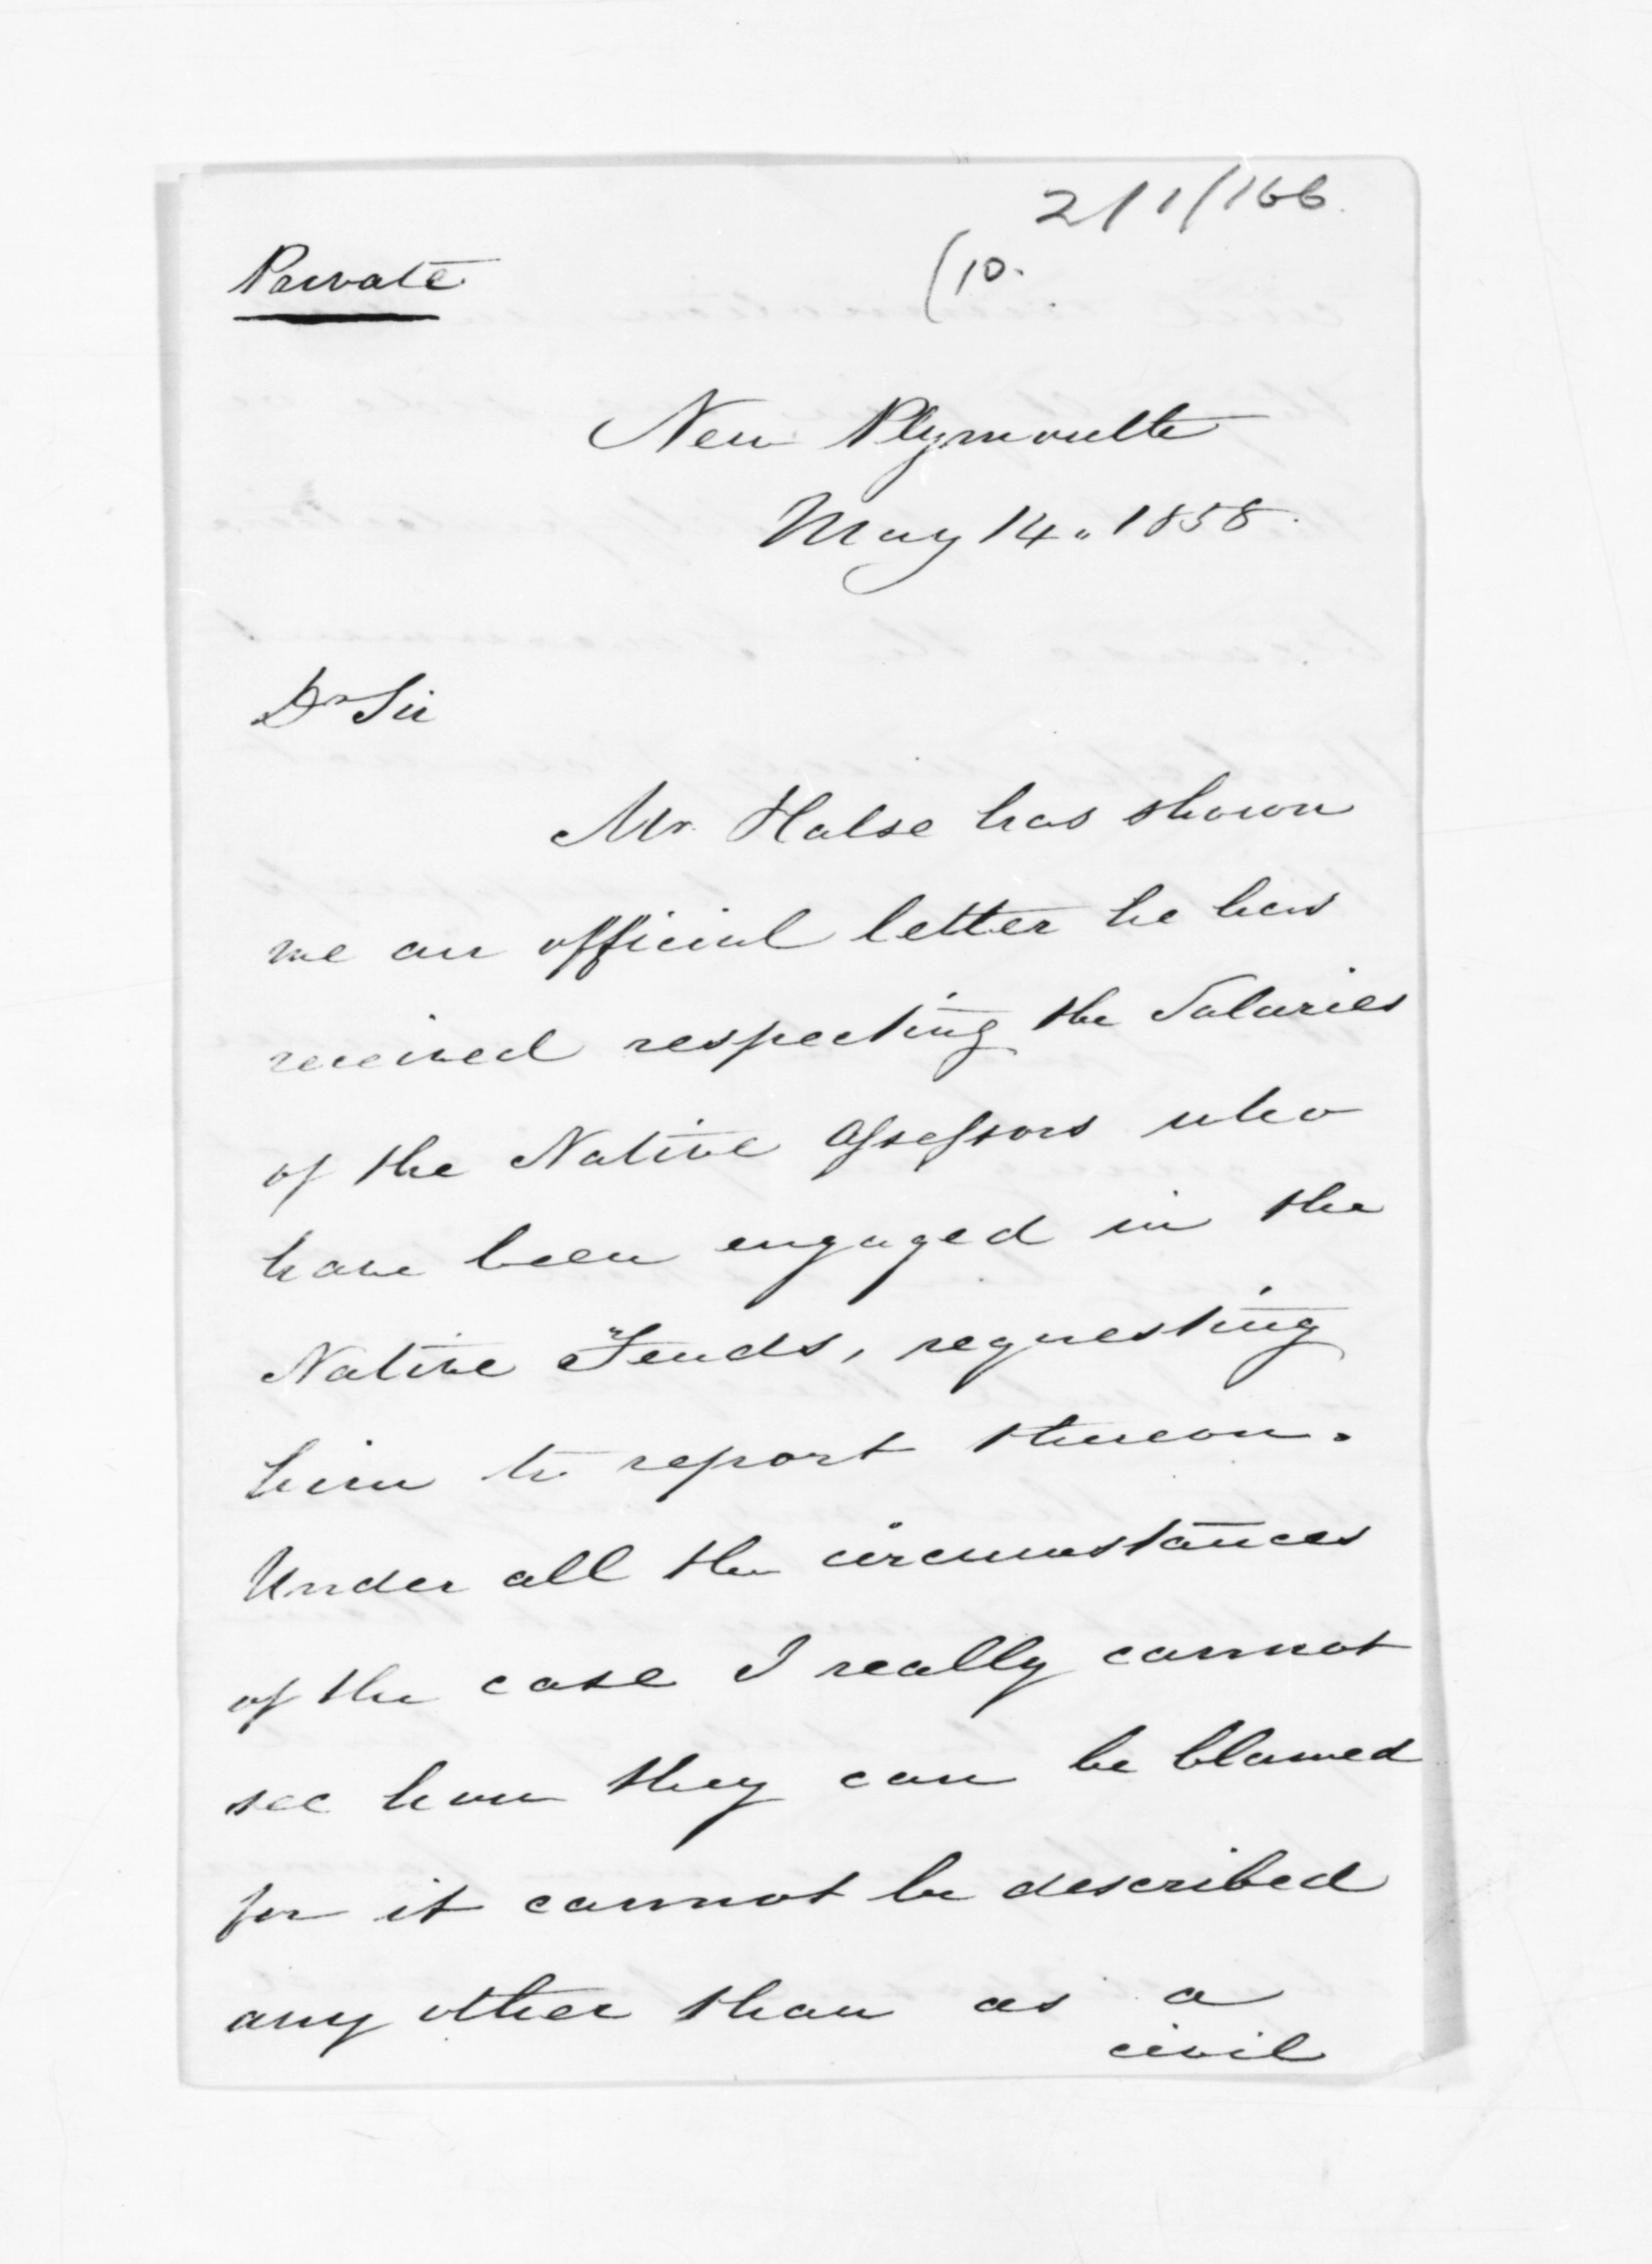 2/1/166.
(10.
Private
New Plymouth
May 14" 1858.
Dr Sir
Mr. Halse has shown
me an official letter he has
received respecting the Salaries
of the Native Assessors who
have been engaged in the
Native Feuds, requesting
him to report thereon.
Under all the circumstances
of the case I really cannot
see how they can be blamed
for it cannot be described
any other than as a
civil